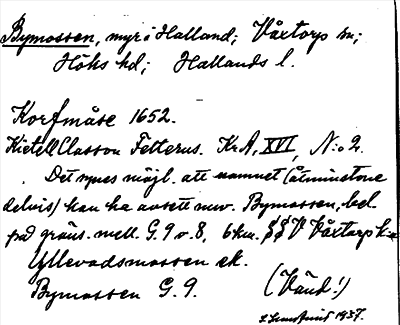 Bymossen, myr i Halland; Våxtorp sn;
Höks hd; Hallands l.
Korfmåse 1652.
Kietell Classon Felterus. KrA, XVI, N:o 2.
Det synes möjl. att namnet (åtminstone
delvis) kan ha avsett nuv. Bymossen, bel.
på gräns. mell. G. 9 o. 8, 6 km. SSV Våxtorp k:a
Yllevadsmossen ek.
Bymossen G. 9. (Vänd!)
1937.